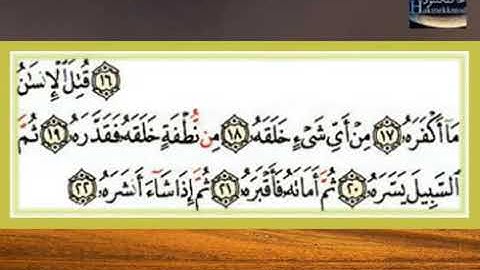 ﴿١٦﴾ قُتِلَ ٱلْإِنسَٰنُ
مَآ أَكْفَرَهُۥ ﴿١٧﴾ مِنْ أَىِّ شَىْءٍ خَلَقَهُۥ ﴿١٨﴾ مِن نُّطْفَةٍ خَلَقَهُۥ فَقَدَّرَهُۥ ﴿١٩﴾ ثُمَّ
ٱلسَّبِيلَ يَسَّرَهُۥ ﴿٢٠﴾ ثُمَّ أَمَاتَهُۥ فَأَقْبَرَهُۥ ﴿٢١﴾ ثُمَّ إِذَا شَآءَ أَنشَرَهُۥ ﴿٢٢﴾